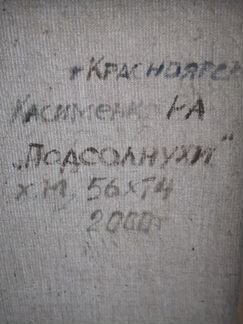 г Красноярск
Касименко Н-А
„Подсолнухи"
х.м, 56х74
2000г